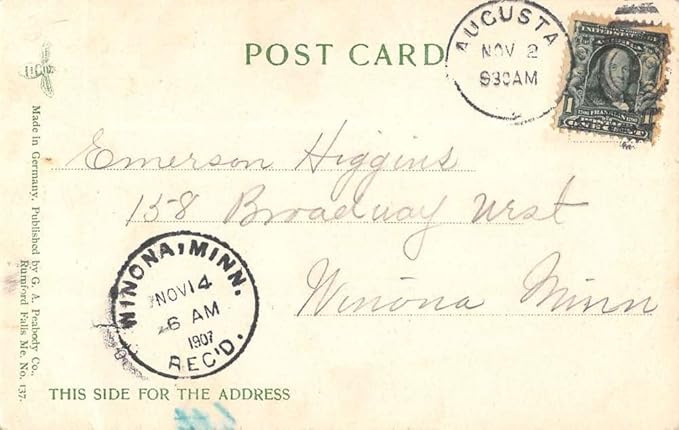 POST CARD
AUGUSTA
NOV 2
930AM
UNITED STATES OF
FRANKLIN
1
ONE CENT
Emerson Higgins
158 Broadway West
Winona Minn
WINONA, MINN.
NOV 14
6 AM
1907
REC'D.
Made in Germany, Published by G. A. Peabody Co.,
Rumford Falls Me. No. 137.
THIS SIDE FOR THE ADDRESS